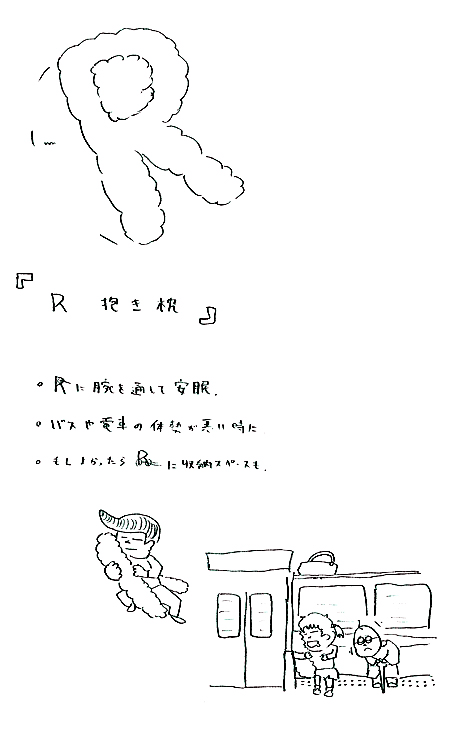 R
『R 抱き枕』
Rに腕を通して安眠.
バスや電車の体勢が悪い時に
もしよかったら Rに収納スペースも.